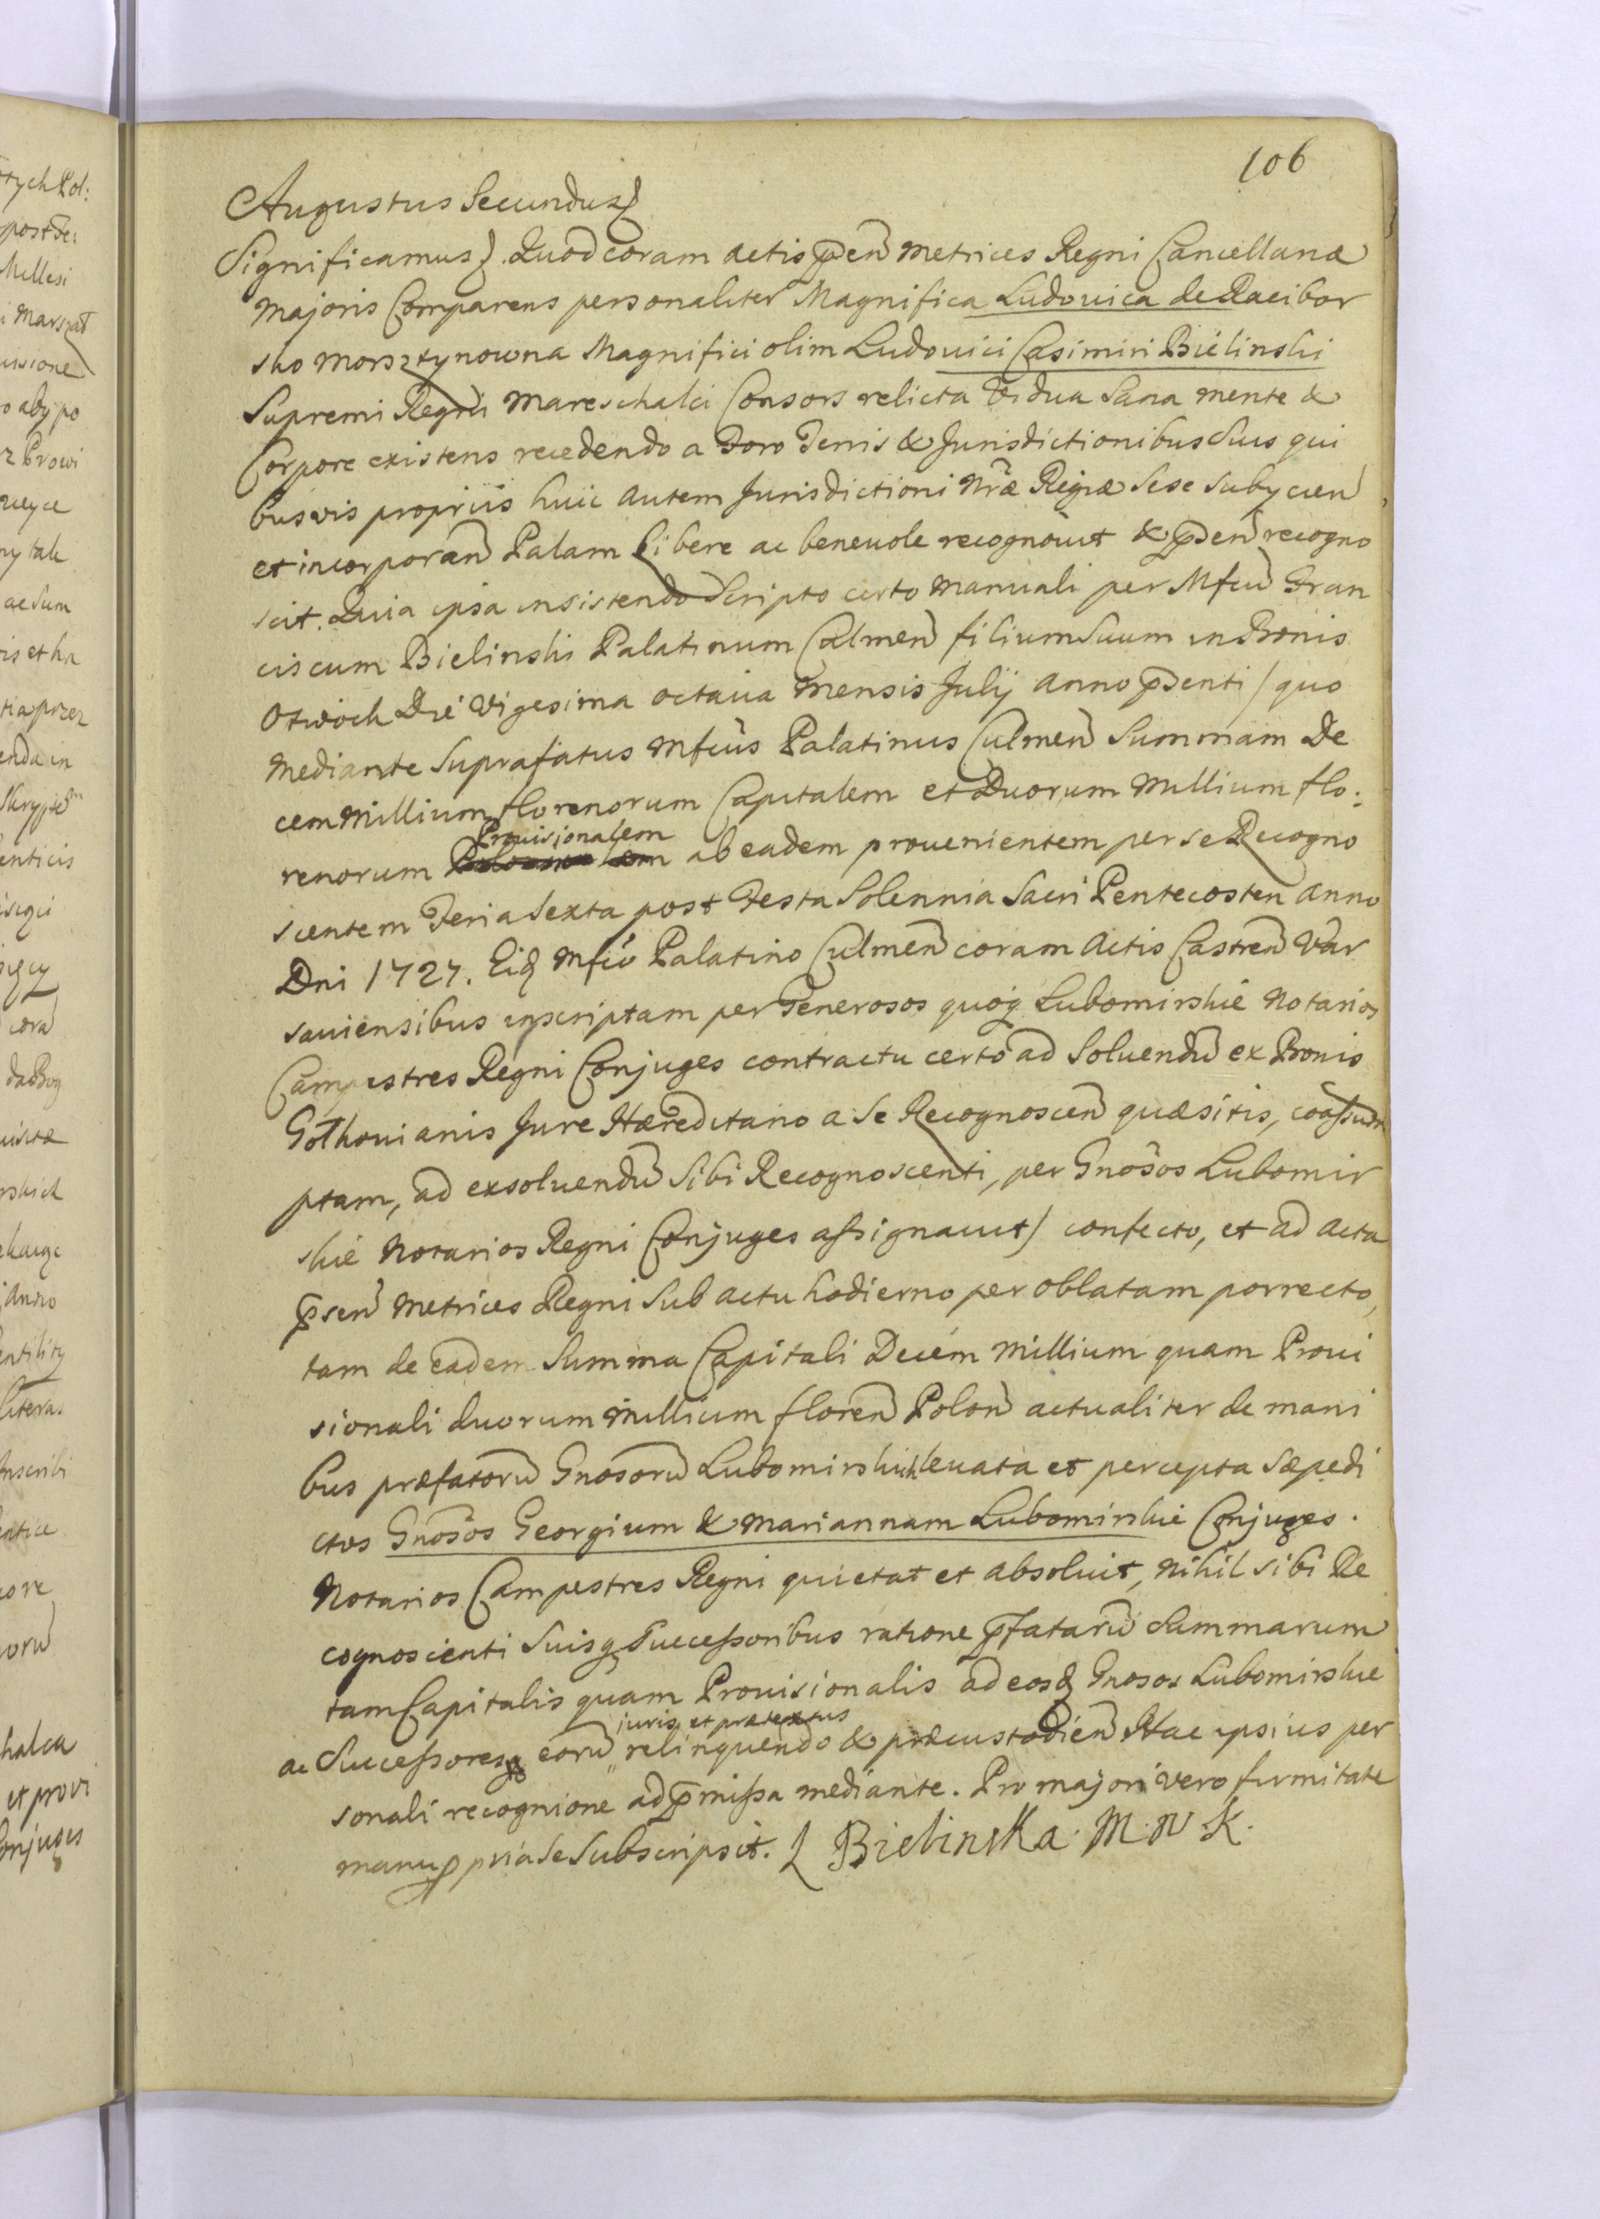 106
Augustus Secundus
Significamus. Quod coram actis pñ Metrices Regni Cancellariæ
Majoris Comparens personaliter Magnifica Ludovica de Racibor
sko Morsztynowna Magnifici olim Ludovici Casimiri Bielinski
Supremi Regni Mareschalci Consors relicta Vidua Sana mente &
Corpore existens recedendo a Foro Terris & Jurisdictionibus Suis qui
busvis propriis huic autem Jurisdictioni Nrae Regiæ Sese Subycien
et incorporan Palam libere ac benevole recognovit & pñ recogno
scit. Quia ipsa insistendo Scripto certo manuali per Mfcu Fran
ciscum Bielinski Palatinum Culmen filium Suum in Bonis
Otwock Die Vigesima octava Mensis Julij Anno psenti / quo
Mediante Suprafatus Mfcus Palatinus Culmen Summam De
cem Millium florenorum Capitalem et Duorum Millium flo:
renorum Provisionalem ab eadem provenientem per se Recogno
scentem Feria Sexta post Festa Solennia Sacri Pentecosten Anno
Dni 1727. Eidem Mfco Palatino Culmen coram Actis Castren Var
saviensibus inscriptam per Generosos quoq Lubomirskie Notarios
Campestres Regni Conjuges contractu certo ad Solvendu ex Bonis
Gothovianis Jure Hæreditario a Se Recognoscen quæsitis,
ptam, ad exsolvendu Sibi Recognoscenti, per Gnosos Lubomir
skie Notarios Regni Conjuges assignavit / confecto, et ad acta
psen Metrices Regni Sub actu hodierno per oblatam porrecto,
tam de eadem Summa Capitali Decem Millium quam Provi
sionali duorum Millium floren Polon actualiter de mani
bus præfatoru Gnosoru Lubomirskich levata et percepta sæpedi
ctos Gnosos Georgium & Mariannam Lubomirskie Conjuges.
Notarios Campestres Regni quietat et absolvit, Nihil sibi Re
cognoscenti Suisq Successoribus ratione pfataru Summarum
tam Capitalis quam Provisionalis ad eosd Gnosos Lubomirskie
juris et prætextus
ac Successores eoru relinquendo & præcustodien Hac ipsius per
sonali recognione ad pmissa mediante. Pro majori vero firmitate
manu ppria Se Subscripsit. L Bielinska M N K.